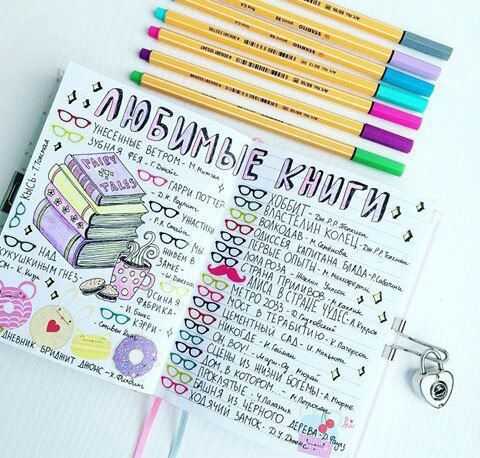 ЛЮБИМЫЕ КНИГИ
УНЕСЕННЫЕ ВЕТРОМ - М. Митчелл
ЗУБНАЯ ФЕЯ - Г. Джойс
FAIRY
TALES
КЫСЬ - Т. Толстая
ГАРРИ ПОТТЕР
Дж. К. Роулинг
МЫ
ЖИВЕМ В
ЗАМКЕ -
НАД
КУКУШКИНЫМ ГНЕЗ-
ДОМ - К. Кизи
ОСИНАЯ
ФАБРИКА -
И. Бэнкс
КЭРРИ -
Стивен Кинг
ДНЕВНИК БРИДЖИТ ДЖОНС - Х. Филдинг
ХОББИТ - Дж. Р. Р. Толкин
ВЛАСТЕЛИН КОЛЕЦ - Дж. Р. Р. Толкин
ВОЛКОДАВ - М. Семёнова
ОДИССЕЯ КАПИТАНА БЛАДА - Р. Сабатини
ПЕРВЫЕ ОПЫТЫ - М.
РОЗА
СТРАНА ПРИЛИВОВ -
АЛИСА В СТРАНЕ ЧУДЕС - Л. Кэрролл
МЕТРО 2033 - Д. Глуховский
МОСТ В ТЕРАБИТИЮ - К. Патерсон
ЦЕМЕНТНЫЙ САД - И. Макьюэн
НИКОГДЕ - Н. Гейман
OH, BOY! - Мари-Од Мюрай
СЦЕНЫ ИЗ ЖИЗНИ БОГЕМЫ - А. Мюрже
ДОМ, В КОТОРОМ... - М. Петросян
ПРОКЛЯТЫЕ - Ч. Паланик
БАШНЯ ИЗ ЧЕРНОГО ДЕРЕВА - Д. Фаулз
ХОДЯЧИЙ ЗАМОК - Д. У. Джонс